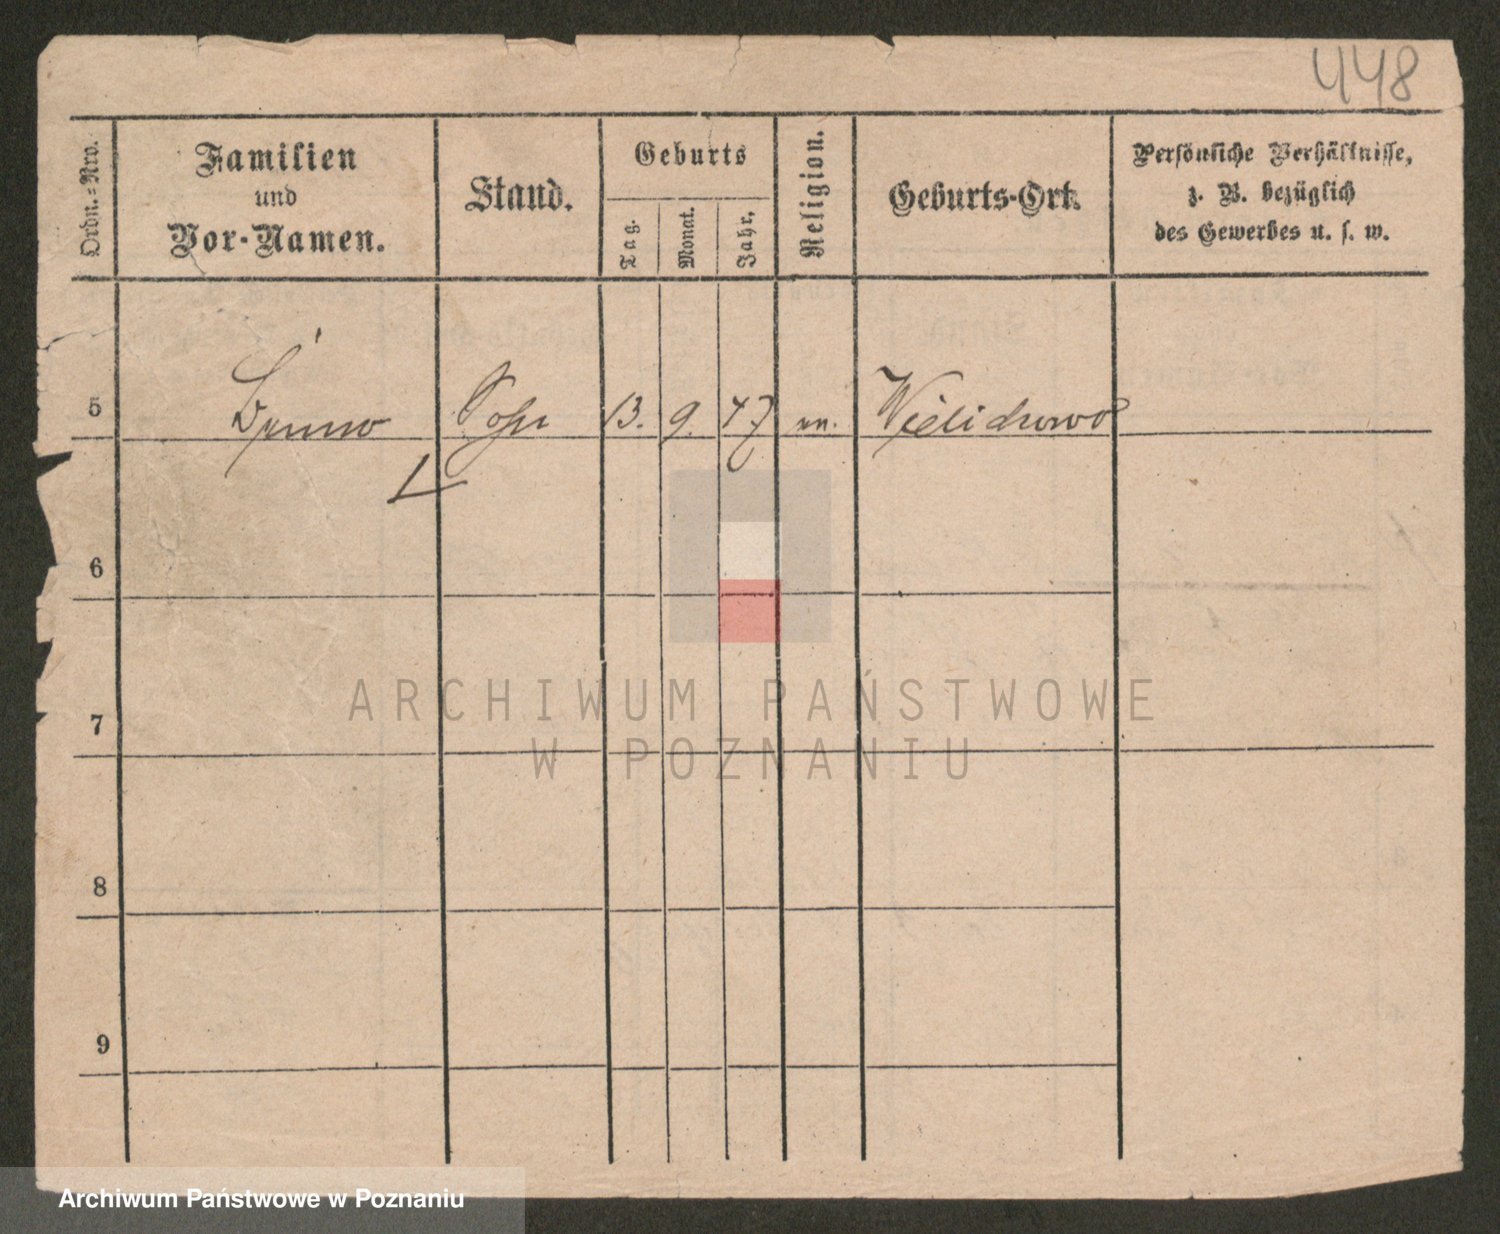 448
Ordn.=Nro.
Familien
und
Vor-Namen.
Stand.
Geburts
Tag.
Monat.
Jahr.
Religion.
Geburts-Ort.
Persönliche Verhältnisse,
z. B. bezüglich
des Gewerbes u. s. w.
5 Benno Sohn 13. 9. 47 Wielichowo
6
7
8
9
ARCHIWUM PAŃSTWOWE
W POZNANIU
Archiwum Państwowe w Poznaniu